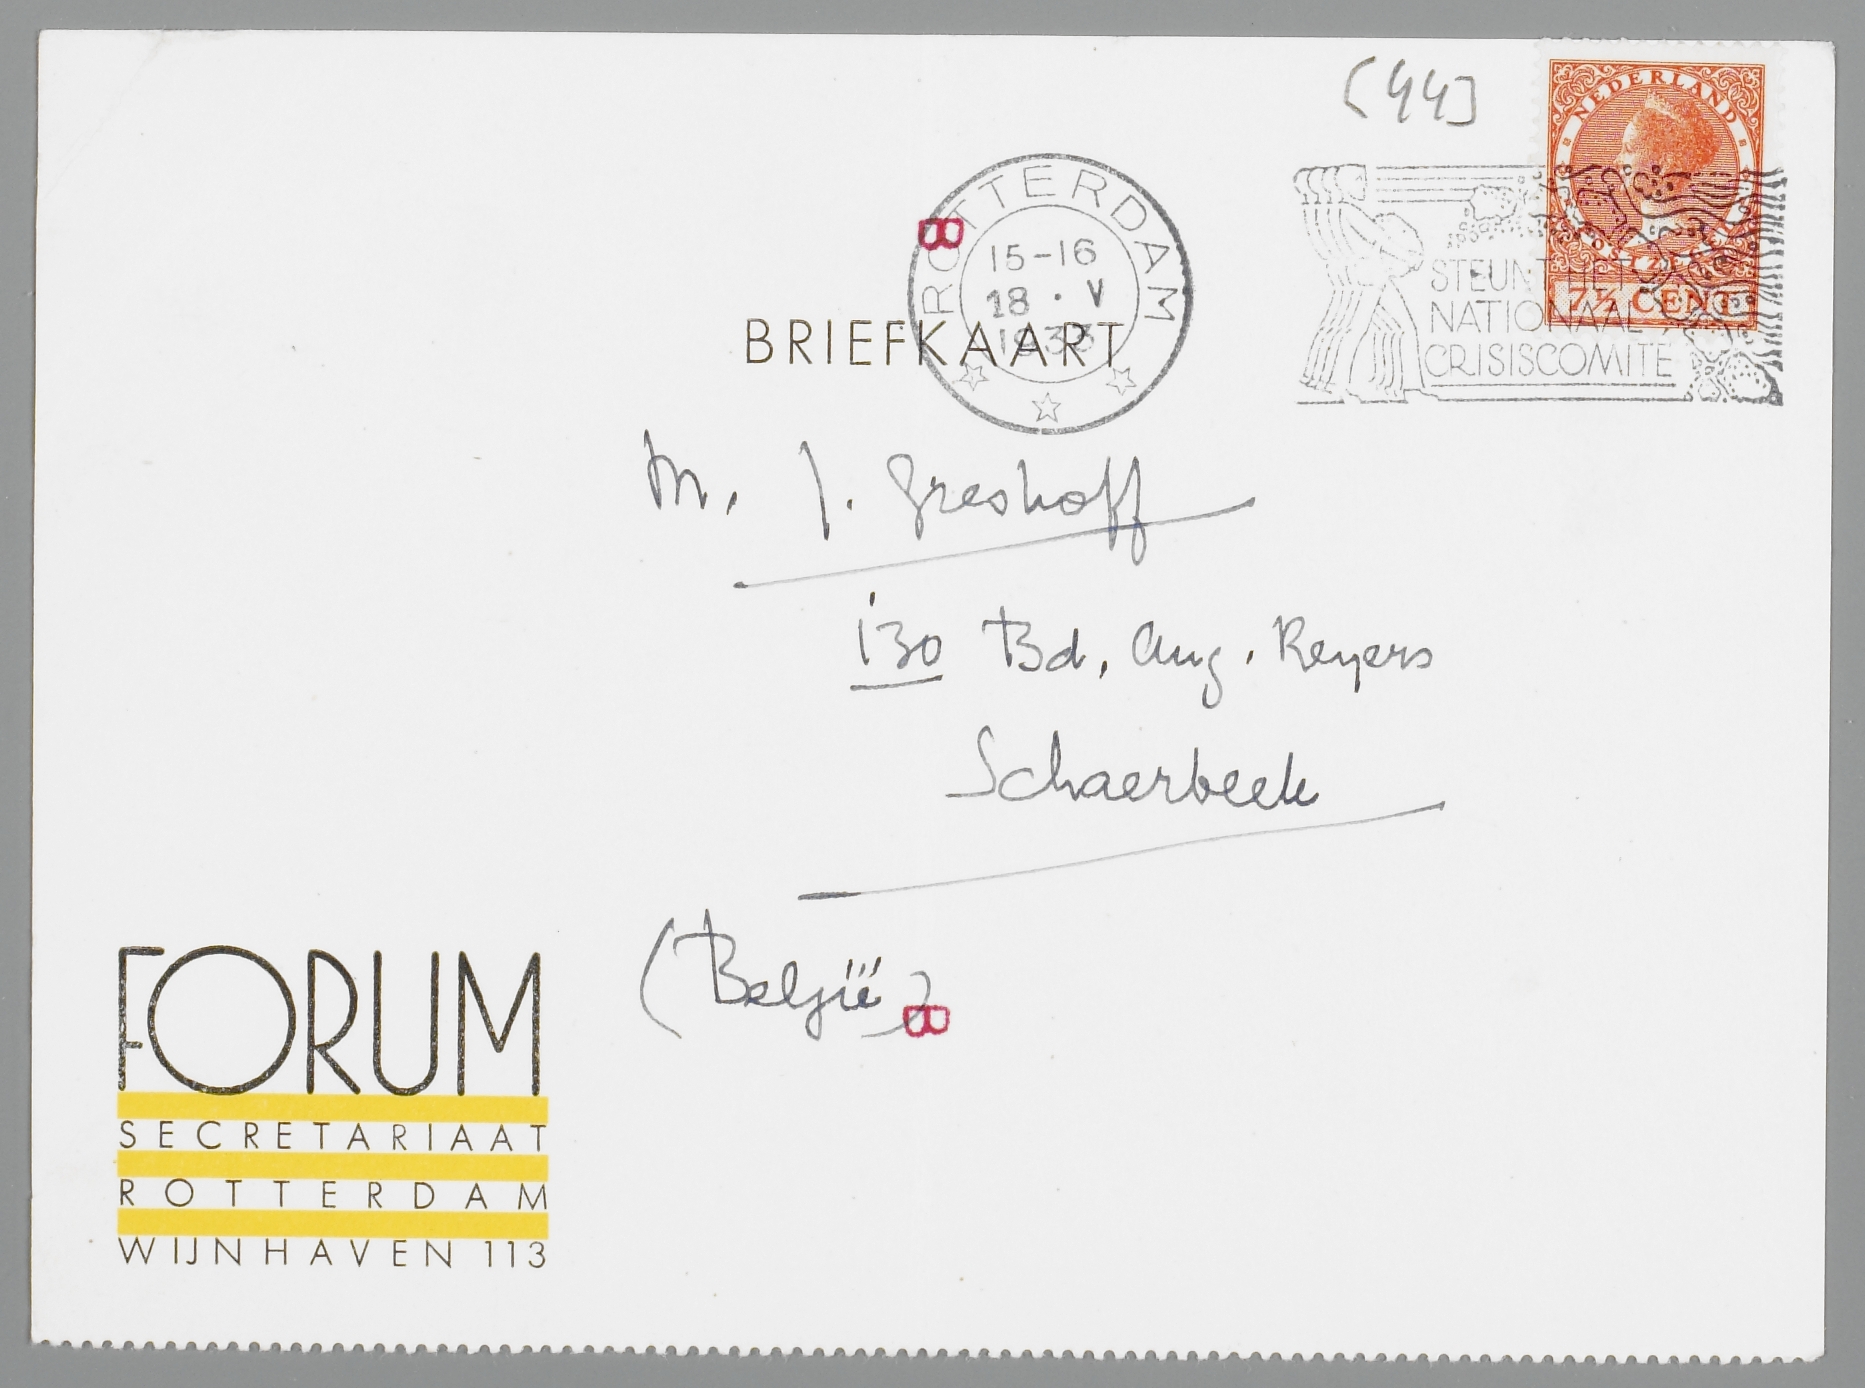 [44]
NEDERLAND
7½ CENT
ROTTERDAM
15-16
18 · V
1933
STEUNT HET
NATIONAAL
CRISISCOMITE
B
BRIEFKAART
M. J. Greshoff
130 Bd. Aug. Reyers
Schaerbeek
(België)
B
FORUM
SECRETARIAAT
ROTTERDAM
WIJNHAVEN 113